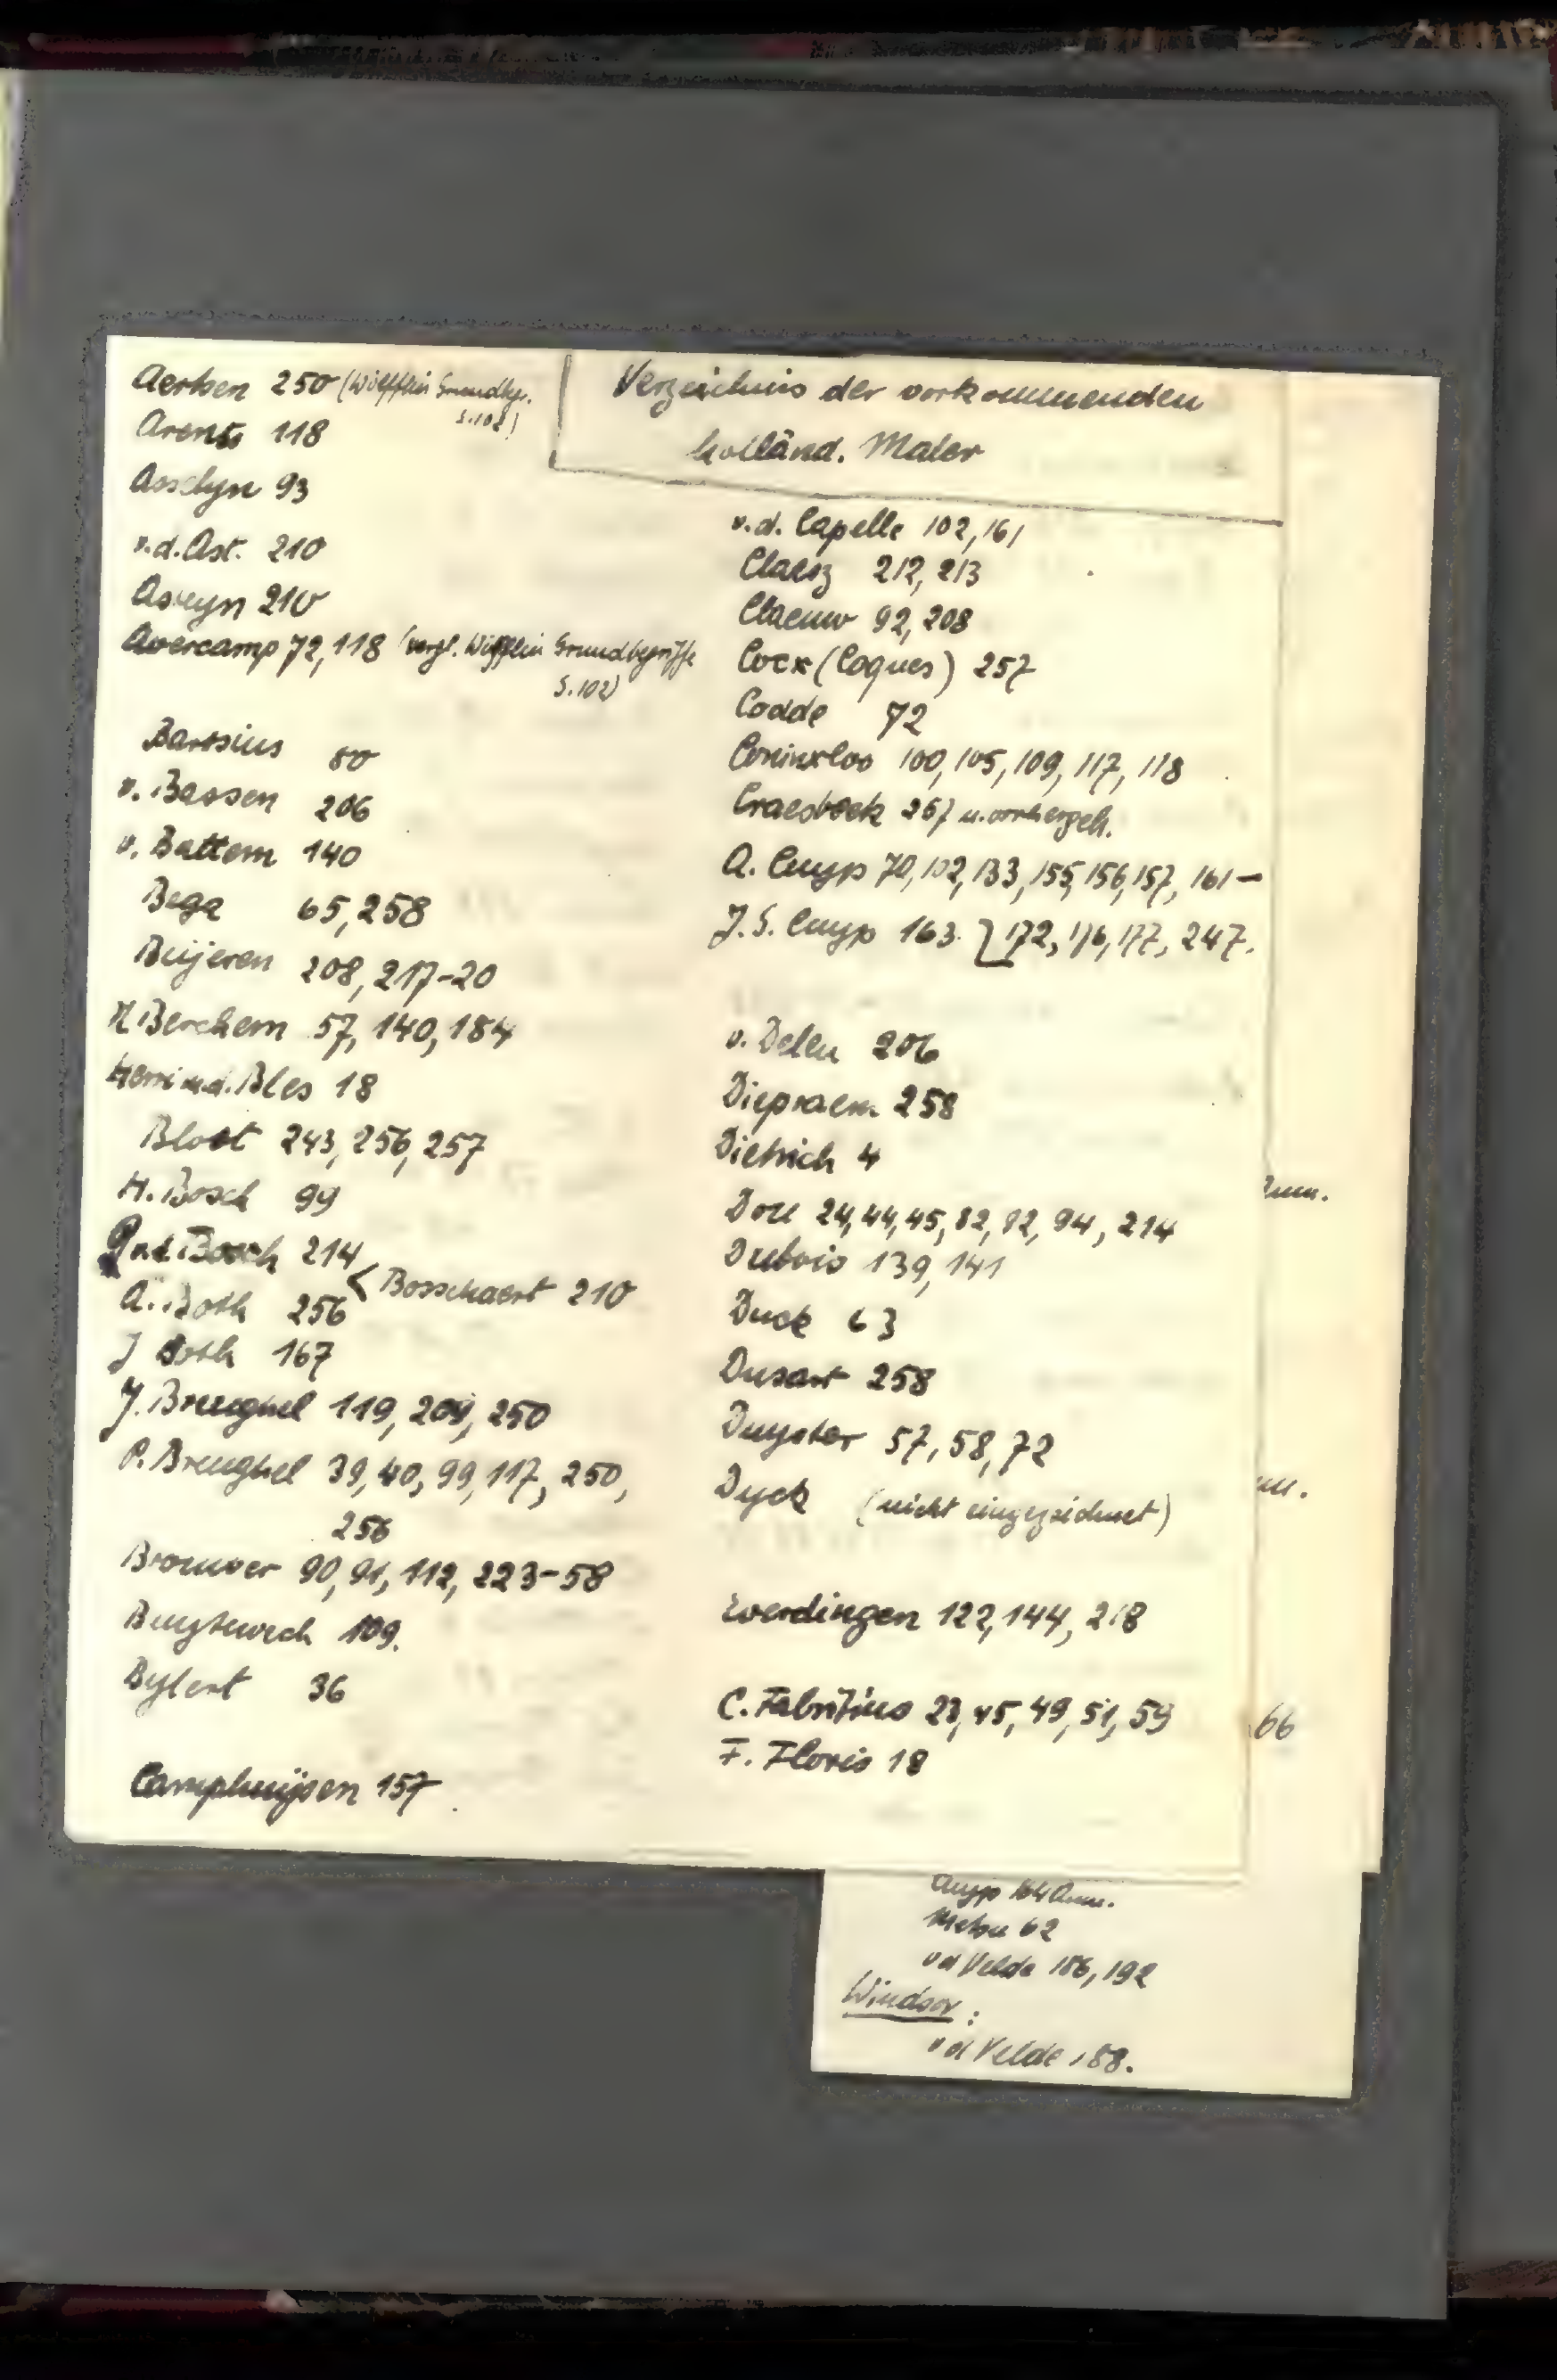 Verzeichnis der vorkommenden
holländ. Maler
Aertsen 250 (Wölfflin Grundbgr.
S.102)
Arents 118
Asselyn 93
v.d. Ast. 210
Asteyn 210
Avercamp 72, 118 (vergl. Wölfflin Grundbegriffe
S.102)
Barsius 80
v. Bassen 206
v. Battem 140
Bega 65, 258
Beijeren 208, 217-20
N Berchem 57, 140, 184
Herri m.d. Bles 18
Bloot 243, 256, 257
H. Bosch 99
P v d Bosch 214
Bosschaert 210
A. Both 256
J Both 167
J. Breughel 119, 209, 250
P. Breughel 39, 40, 99, 117, 250,
256
Brouwer 90, 91, 112, 223-58
Buytewech 109.
Bylert 36
Camphuijsen 157
v.d. Capelle 102, 161
Claesz 212, 213
Claeuw 92, 208
Cocx (Coques) 257
Codde 72
Coninxloo 100, 105, 109, 117, 118
Craesbeek 257 u. vorhergeh.
A. Cuyp 70, 102, 133, 155, 156, 157, 161-
J. G. Cuyp 163. 172, 176, 177, 247.
v. Delen 206
Diepraem. 258
Dietrich 4
Dou 24, 44, 45, 82, 92, 94, 214
Dubois 139, 141
Duck 63
Dusart 258
Duyster 57, 58, 72
Dyck (nicht eingezeichnet)
Everdingen 122, 144, 218
C. Fabritius 23, 45, 49, 51, 59
F. Floris 18
66
Cuyp 164 Anm.
Metsu 62
v d Velde 186, 192
Windsor:
v d Velde 188.